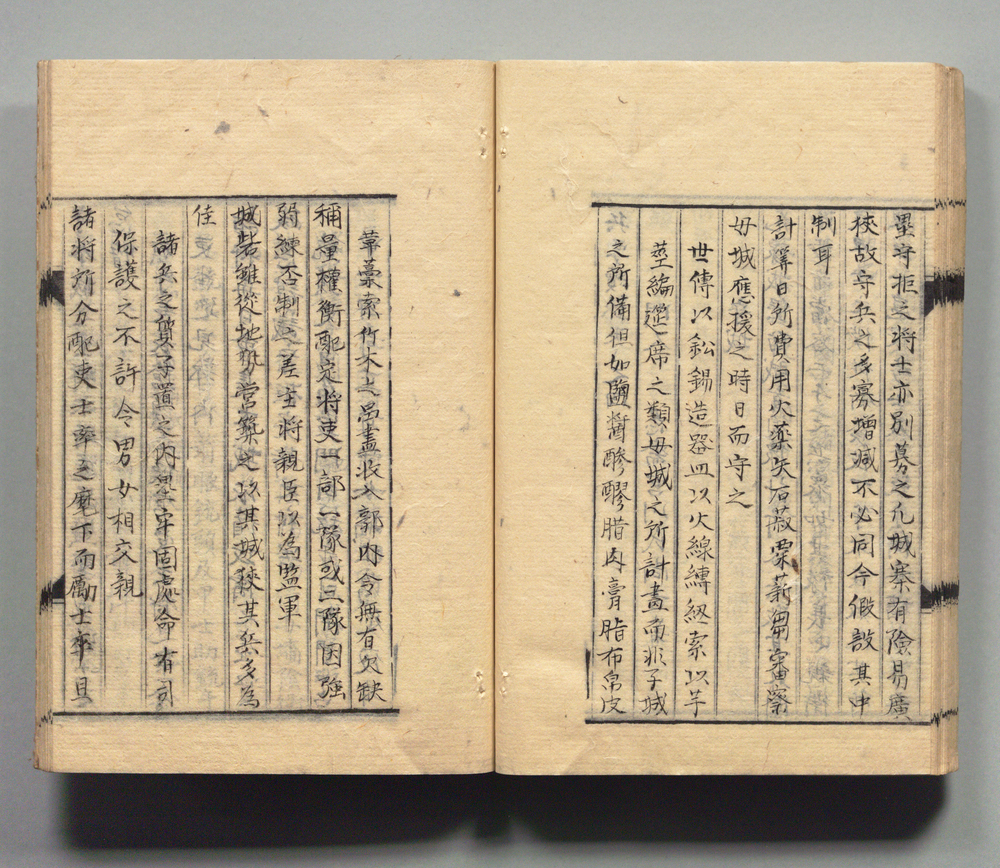 壘守拒之将士亦別募之凢城寨有險易廣
挾故守兵之多寡增減不必同今假設其中
制耳
計算日所費用火藥矢石菽粟薪芻審察
毋城應援之時日而守之
世傳以鈆錫造器皿以火線縛紉索以芋
莖編筵席之類毋城之所計畫而非子城
之所備但如鹽醬醪腊肉膏脂布帛皮
革藁索竹木之品盡收入郭内令無有欠缺
稱量權衡配定将吏一部一隊或三隊因強
弱練否制之差主将親臣以為監軍
城砦雖從地形營築之以其城狹其兵多為
佳
諸兵之質子置之内壘牢固處命有司
保護之不許令男女相交親
諸将所分配吏士率之麾下而勵士卒且